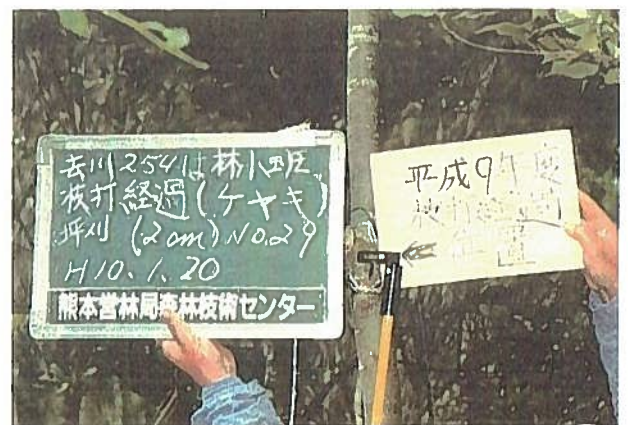 去川254は林小班
枝打経過(ケヤキ)
坪刈 (2cm) No.29
H10.1.20
熊本営林局森林技術センター
平成9年度
枝打